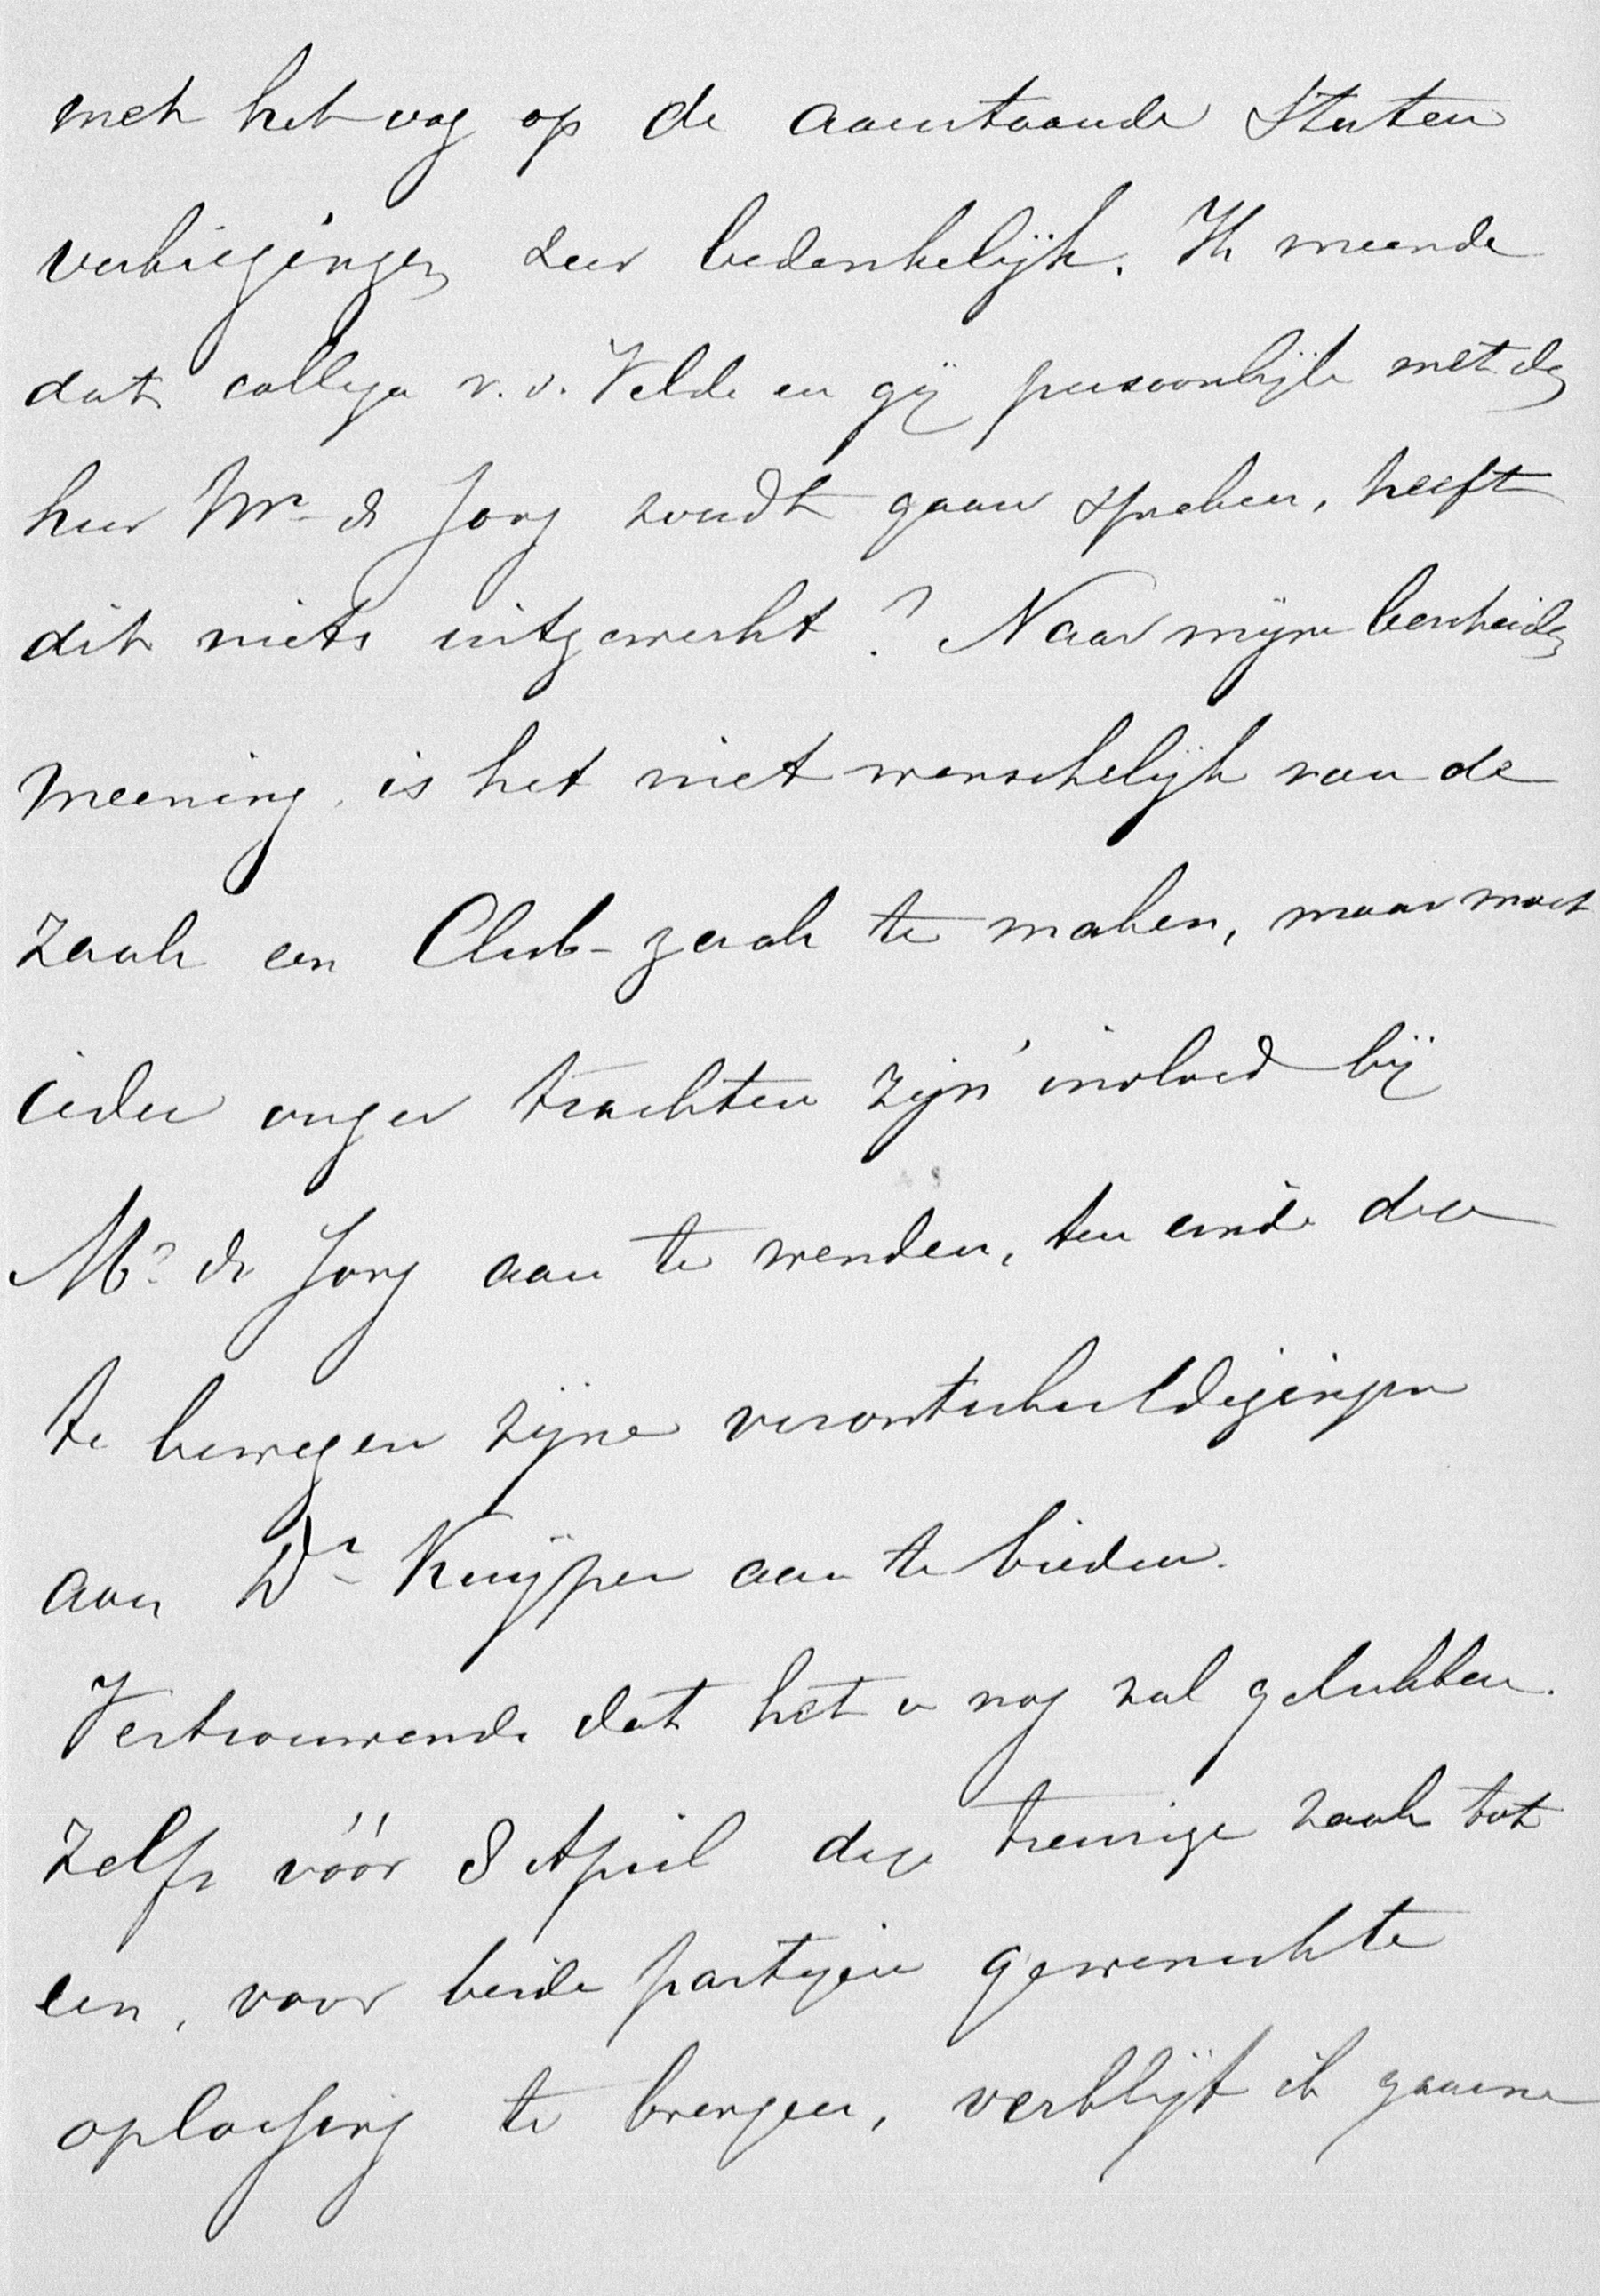 met het oog op de aanstaande Staten
verkiezingen zeer bedenkelijk. Ik meende
dat collega v. d. Velde en gij persoonlijk met den
heer Mr. de Jong zoudt gaan spreken, heeft
dit niets uitgewerkt? Naar mijne bescheiden
meening, is het niet wenschelijk van de
zaak een Club-zaak te maken, maar moet
ieder onzer trachten zijn' invloed bij
Mr. de Jong aan te wenden, ten einde dezen
te bewegen zijne verontschuldigingen
aan Dr. Kuijper aan te bieden.
Vertrouwende dat het u nog zal gelukken.
zelfs vóór 8 April deze treurige zaak tot
een, voor beide partijen gewenschte
oplossing te brengen, verblijf ik gaarne